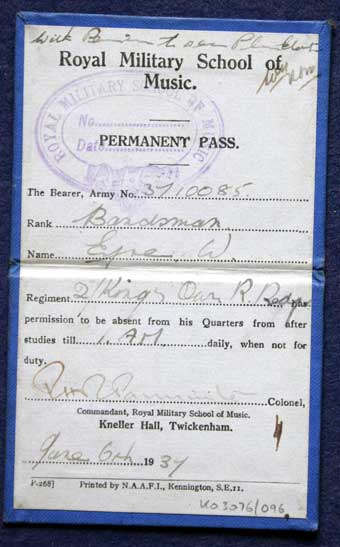 Royal Military School of
Music.
ROYAL MILITARY SCHOOL OF MUSIC
No.
Date
PERMANENT PASS.
The Bearer, Army No. 3710085
Rank Bandsman
Name W.
Regiment 2 King's Own R. Regt has
permission to be absent from his Quarters from after
studies till 1. AM daily, when not for
duty.
Colonel,
Commandant, Royal Military School of Music.
Kneller Hall, Twickenham.
June 6th 1937
P.268] Printed by N.A.A.F.I., Kennington, S.E.11.
KO3076/096